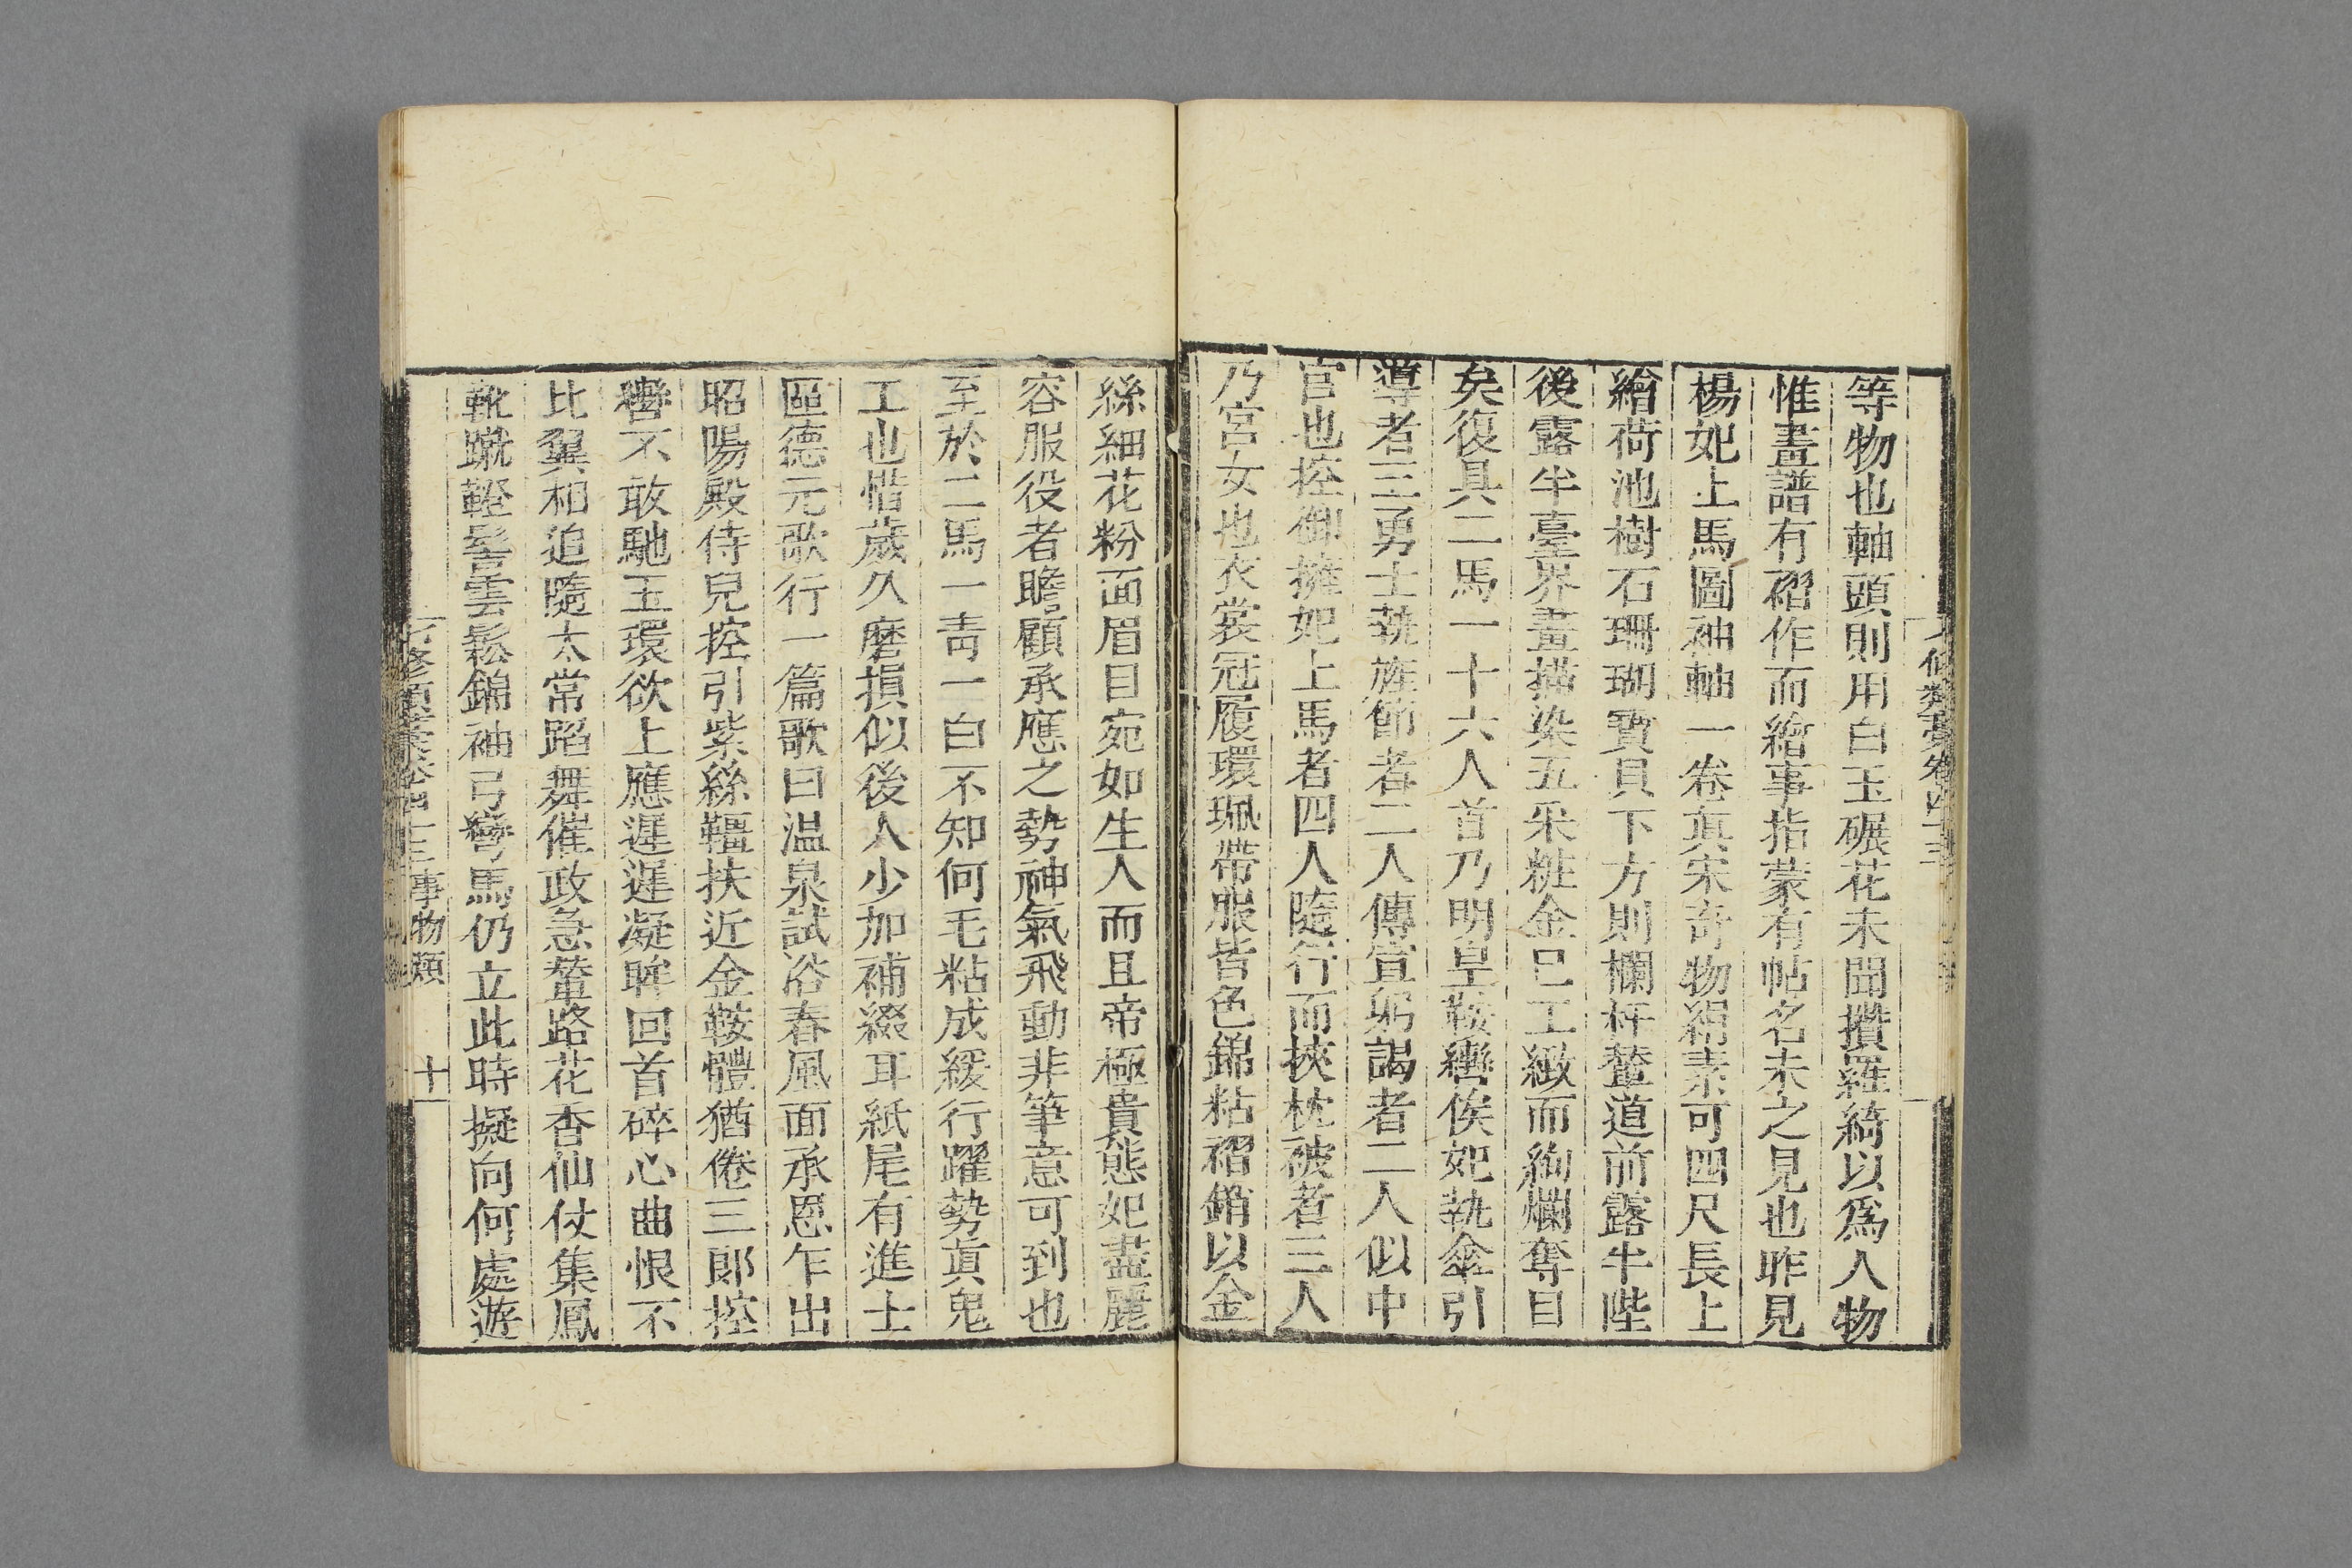 等物也軸頭則用白玉碾花未聞攢羅綺以爲人物
惟畫譜有褶作而繪事指蒙有帖名未之見也昨見
楊妃上馬圖袖軸一卷眞宋奇物絹素可四尺長上
繪荷池樹石珊瑚寶貝下方則欄杆輦道前露半陛
後露半臺界畫描染五采粧金已工緻而絢爛奪目
矣復具二馬一十六人首乃明皇鞍轡俟妃執傘引
導者三勇士執旌節者二人傳宣躬謁者二人似中
官也控御擁妃上馬者四人隨行而挾枕破者三人
乃宮女也衣裳冠履環珮帶服皆色錦粘褶銷以金
絲細花粉面眉目宛如生人而且帝極貴態妃盡麗
容服役者瞻顧承應之勢神氣飛動非筆意可到也
至於二馬一靑一白不知何毛粘成緩行躍勢眞鬼
工也惜歲久磨損似後人少加補綴耳紙尾有進士
區德元歌行一篇歌曰温泉試浴春風面承恩乍出
昭陽殿侍兒控引紫絲韁扶近金鞍體猶倦三郎控
轡不敢馳玉環欲上應遲遲凝眸回首碎心曲恨不
比翼相追隨太常蹈舞催政急輦路花杳仙仗集鳳
靴蹴鞚髻雲鬆錦袖弓彎馬仍立此時擬向何處遊
七修類稾卷四十三事物類 十